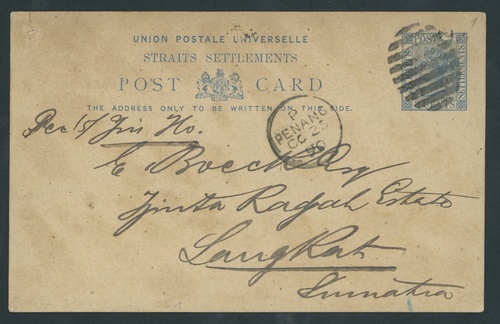 UNION POSTALE UNIVERSELLE
STRAITS SETTLEMENTS
POST CARD
THE ADDRESS ONLY TO BE WRITTEN ON THIS SIDE.
Per S/ No.
P
PENANG
OC 23
90
E Boeck Esq
Estate
Langkat
Sumatra